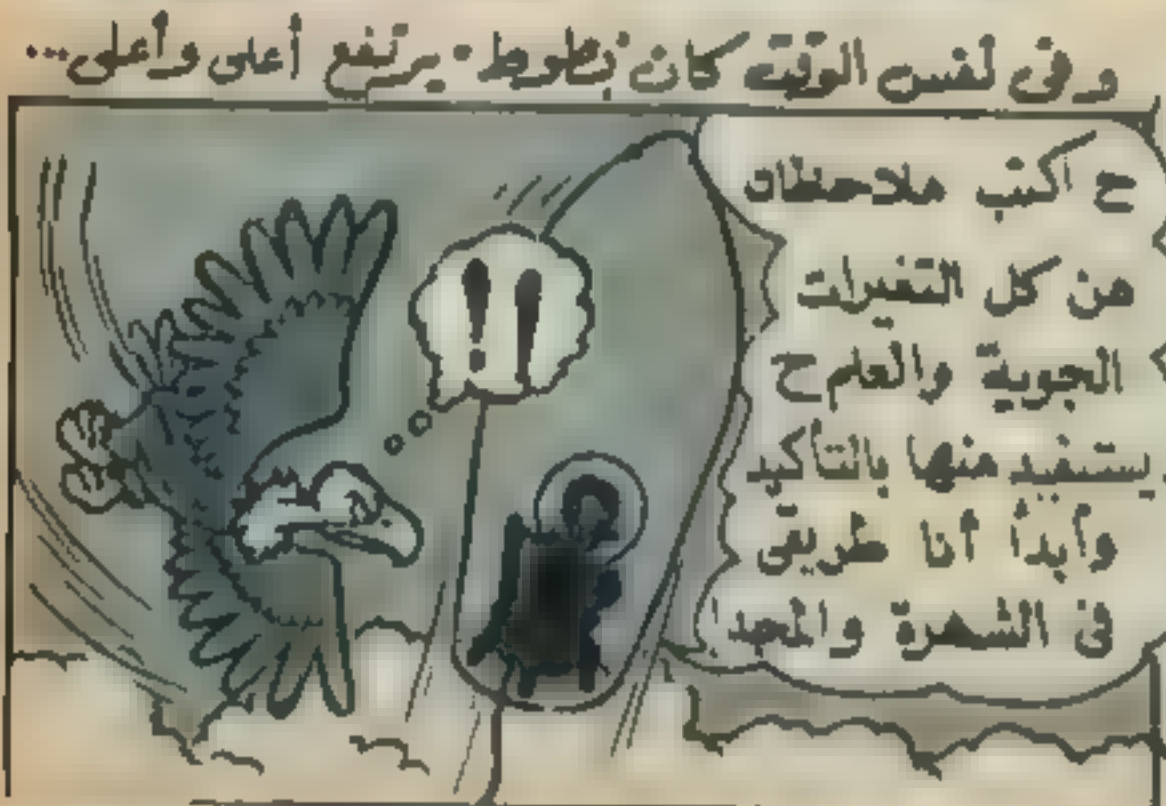 وفى نفس الوقت كان بطوط يرتفع أعلى وأعلى...
ح أكتب ملاحظات
عن كل التغيرات
الجوية والعلم ح
يستفيد منها بالتأكيد
وأبدأ أنا طريقى
فى الشهرة والمجد
!!